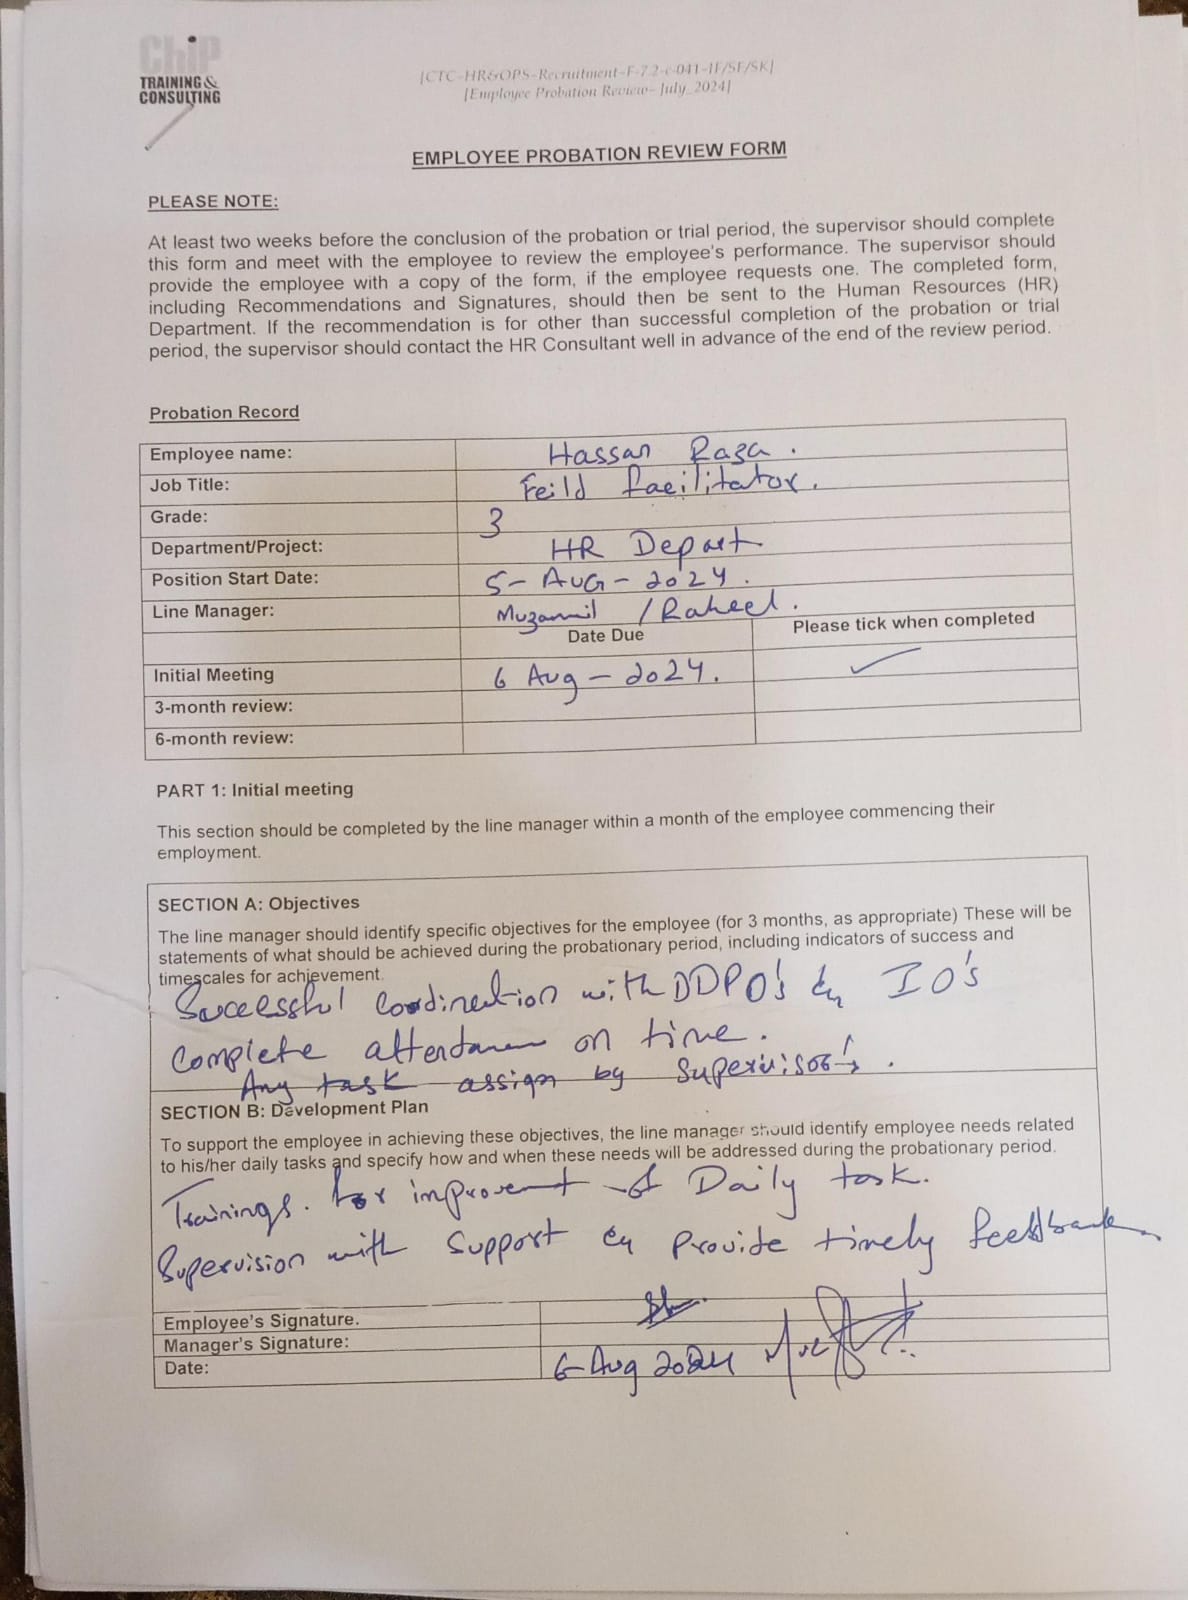 ChiP
TRAINING &
CONSULTING
[CTC-HR&OPS-Recruitment-F-7.2-c-041-IF/SF/SK]
[Employee Probation Review- July_2024]
EMPLOYEE PROBATION REVIEW FORM
PLEASE NOTE:
At least two weeks before the conclusion of the probation or trial period, the supervisor should complete
this form and meet with the employee to review the employee's performance. The supervisor should
provide the employee with a copy of the form, if the employee requests one. The completed form,
including Recommendations and Signatures, should then be sent to the Human Resources (HR)
Department. If the recommendation is for other than successful completion of the probation or trial
period, the supervisor should contact the HR Consultant well in advance of the end of the review period.
Probation Record
Employee name: Hassan Raza.
Job Title: Feild facilitator.
Grade: 3
Department/Project: HR Depart
Position Start Date: 5-AUG-2024.
Line Manager: Muzammil / Raheel.
Date Due Please tick when completed
Initial Meeting 6 Aug-2024. ✓
3-month review:
6-month review:
PART 1: Initial meeting
This section should be completed by the line manager within a month of the employee commencing their
employment.
SECTION A: Objectives
The line manager should identify specific objectives for the employee (for 3 months, as appropriate) These will be
statements of what should be achieved during the probationary period, including indicators of success and
timescales for achievement.
Successful coordination with DDPO's & IO's
Complete attendance on time.
Any task assign by Supervisor's.
SECTION B: Development Plan
To support the employee in achieving these objectives, the line manager should identify employee needs related
to his/her daily tasks and specify how and when these needs will be addressed during the probationary period.
Trainings. for improvement of Daily task.
Supervision with support & Provide timely feedback
Employee's Signature.
Manager's Signature:
Date: 6-Aug 2024